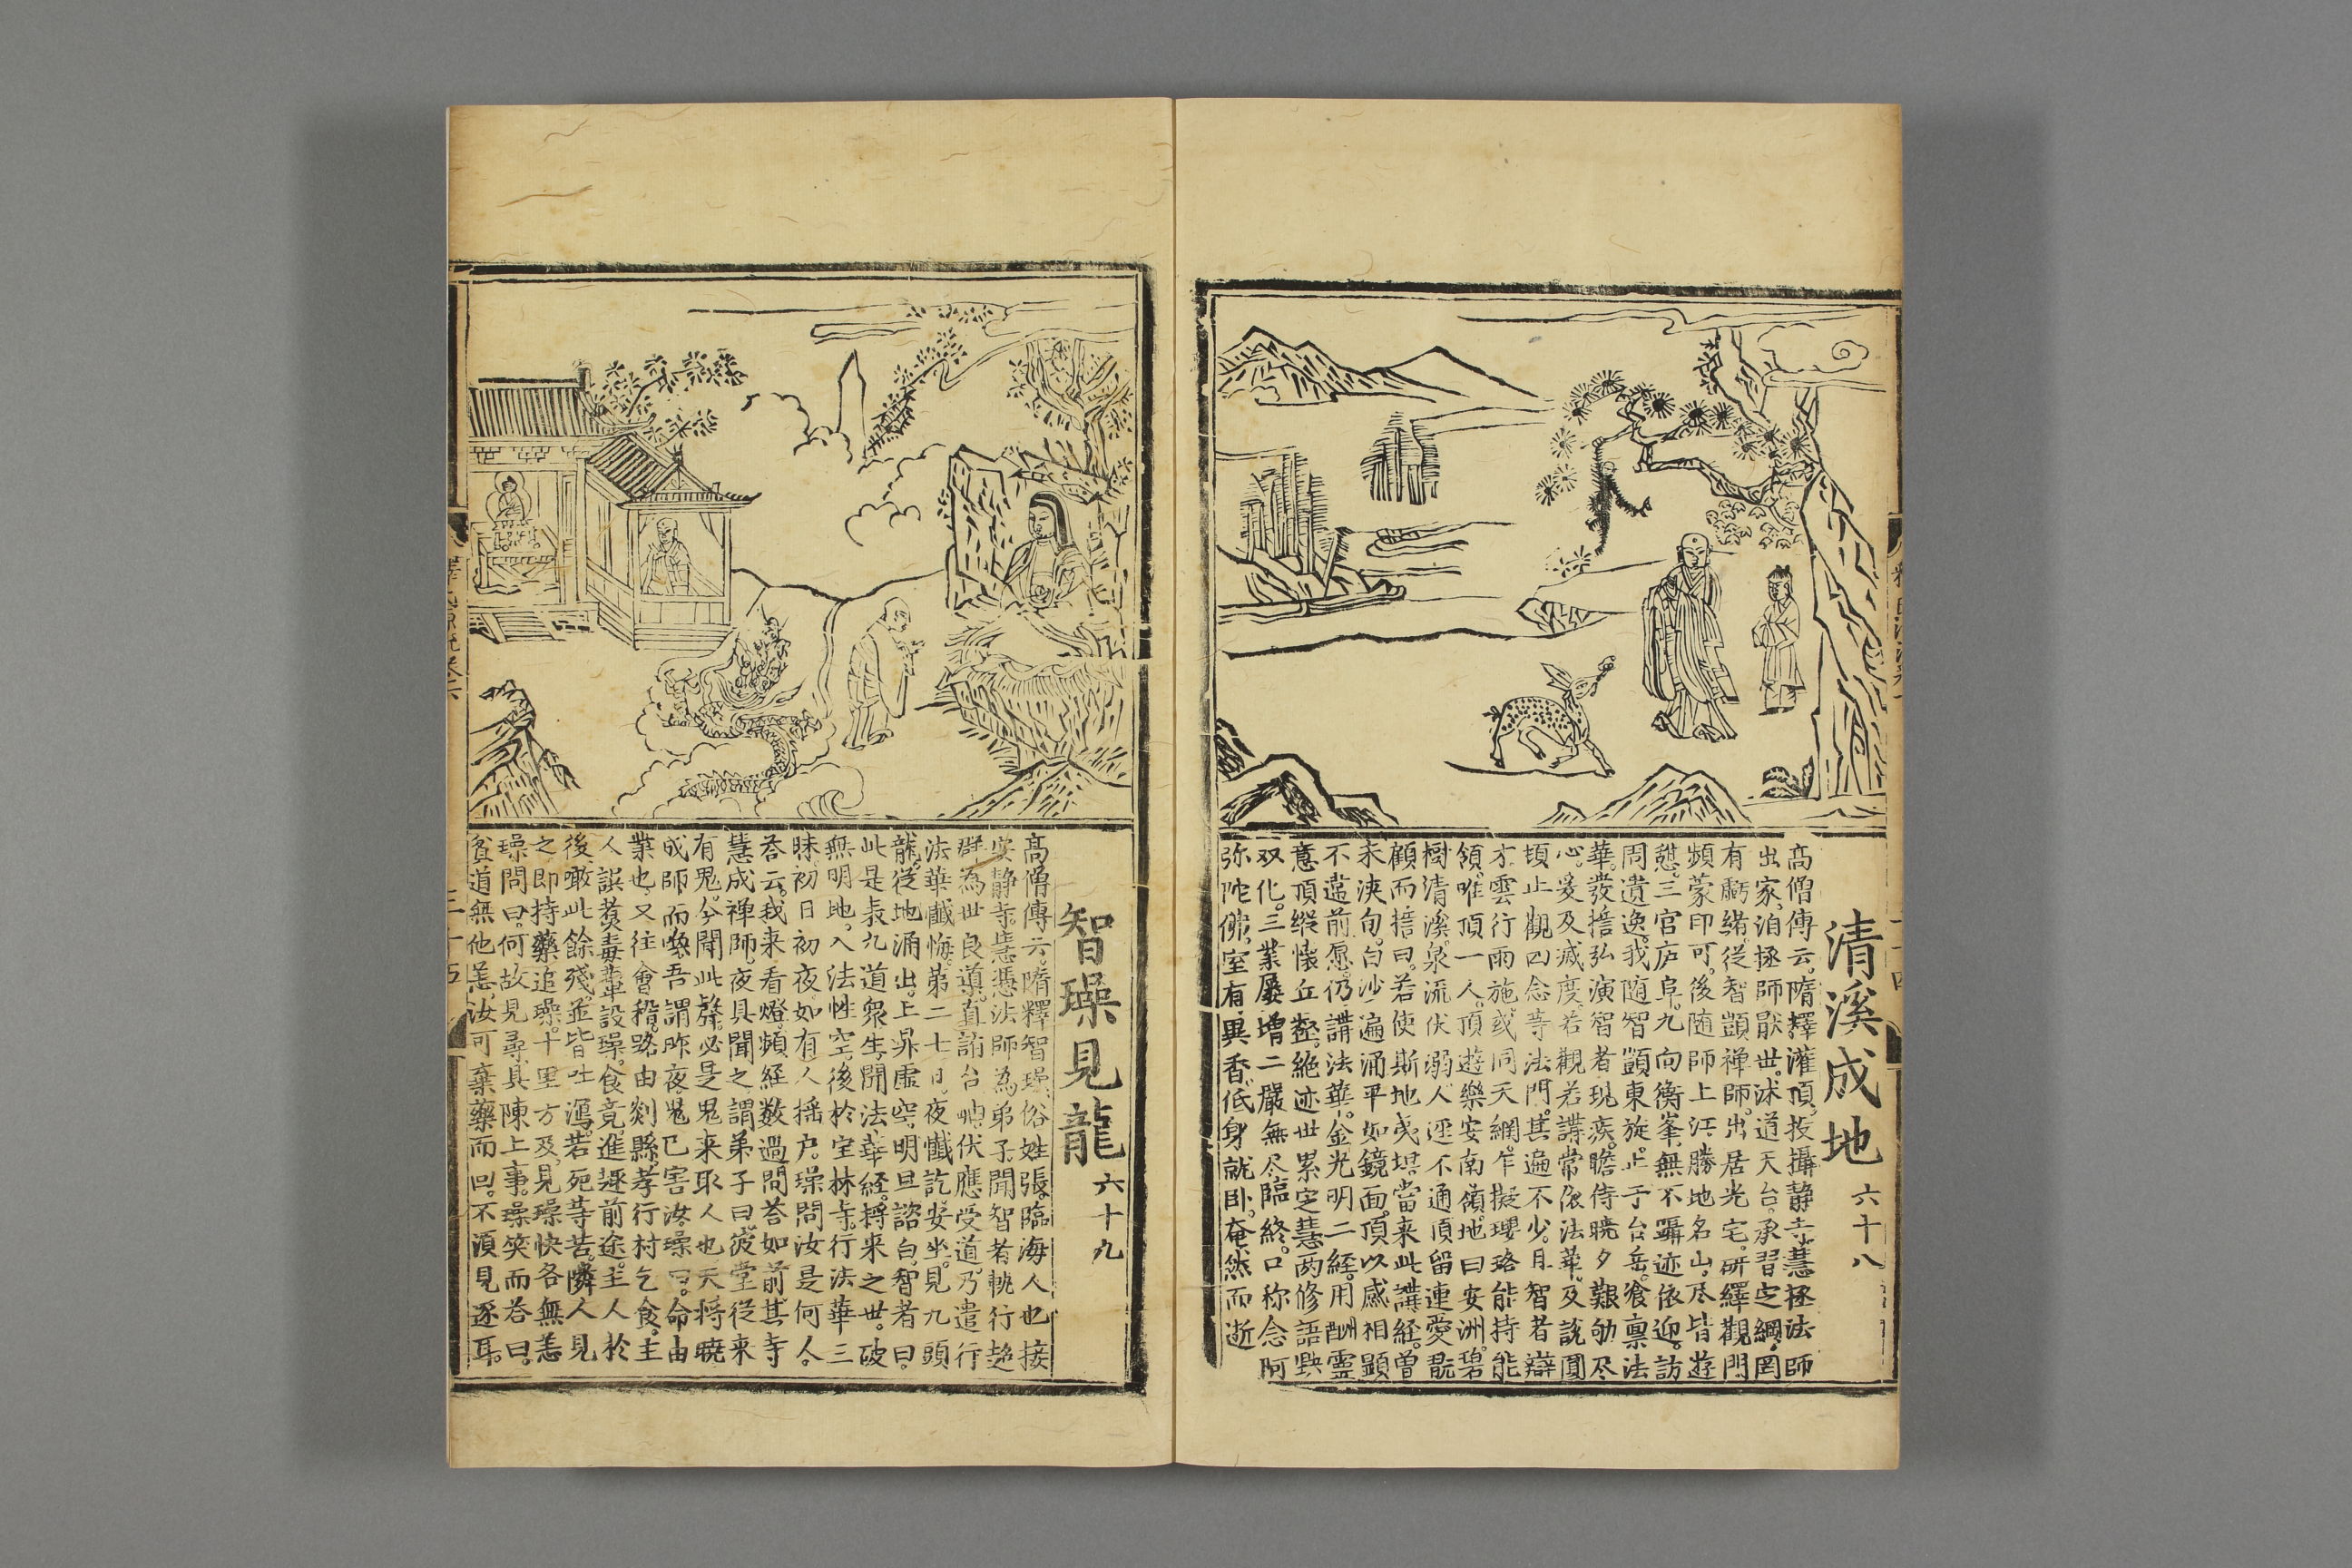 清溪成地 六十八
高僧傳云。隋釋灌頂。投攝静寺慧拯法師
出家。洎拯師厭世。沭道天台。承習定綱。罔
有虧緒。從智顗禅師。出居光宅。研繹觀門
頻蒙印可。後随師上江。勝地名山。尽皆遊
憇。三宫庐阜。九向衡峯。無不躡迹依迎。訪
問遺逸。我随智顗東旋。止于台岳。飡禀法
華。發捨弘演。智者現疾。瞻侍曉夕。艱劬尽
心。爰及滅度。若觀若講。常依法華。及說圓
頓止觀四念等法門。其遍不少。且智者辯
才。雲行雨施。或同天網。乍擬璎珞。能持能
領。唯頂一人。頂遊樂安南嶺。地曰安洲。碧
樹清溪。泉流伏溺。人迳不通。頂留連愛翫
顧而捨曰。若使斯地夷坦。當来此講経。曽
未浹旬。白沙遍涌。平如鏡面。頂以感相顯
不違前愿。仍講法華。金光明二経。用酬靈
意。頂縀懐丘壑。絶迹世累。定慧両修。語黙
双化。三業屡增。二嚴無尽。臨終。口称念阿
弥陀佛。室有異香。低身就卧。奄然而逝
智璪見龍 六十九
高僧傳云。隋釋智璪。俗姓張。臨海人也。接
安静寺。慧憑法師為弟子。聞智者軌行超
群。為世良導。直詣台岫。伏應受道。乃遣行
法華懺悔。第二七日。夜懺訖。安坐。見九頭
龍。従地涌出。上昇虚空。明旦諮白。智者曰。
此是表九道衆生。聞法華経。将来之世。破
無明地。入法性空。後於宝林寺。行法華三
昧。初日初夜。如有人揺户。璪問汝是何人。
荅云。我来看燈。頻経数過。問荅如前。其寺
慧成禅師。夜具聞之。謂弟子曰。彼堂従来
有鬼。今聞此聲。必是鬼来取人也。天将曉
成師而喚吾。謂昨夜。鬼已害汝。璪曰。命由
業也。又往會稽。路由剡縣。孝行村乞食。主
人誤煮毒蕈設璪。食竟。進趣前途。主人於
後。噉此餘殘。並皆吐瀉。若死等苦。隣人見
之。即持藥追璪。十里方及。見璪快各無恙
璪問曰。何故見尋。具陳上事。璪笑而荅曰。
貧道無他恙。汝可棄藥而回。不須見逐耳。